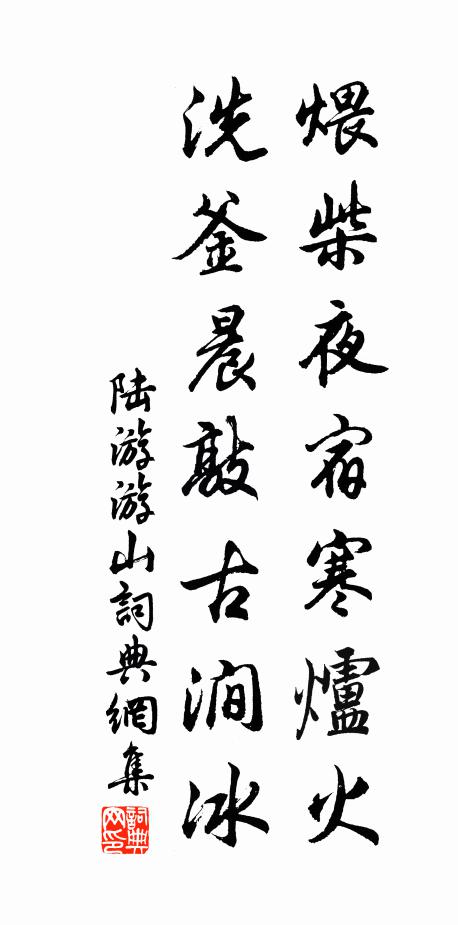 煨柴夜宿寒爐火
洗釜晨敲古澗冰
陆游游山詞典網集
詞典網印